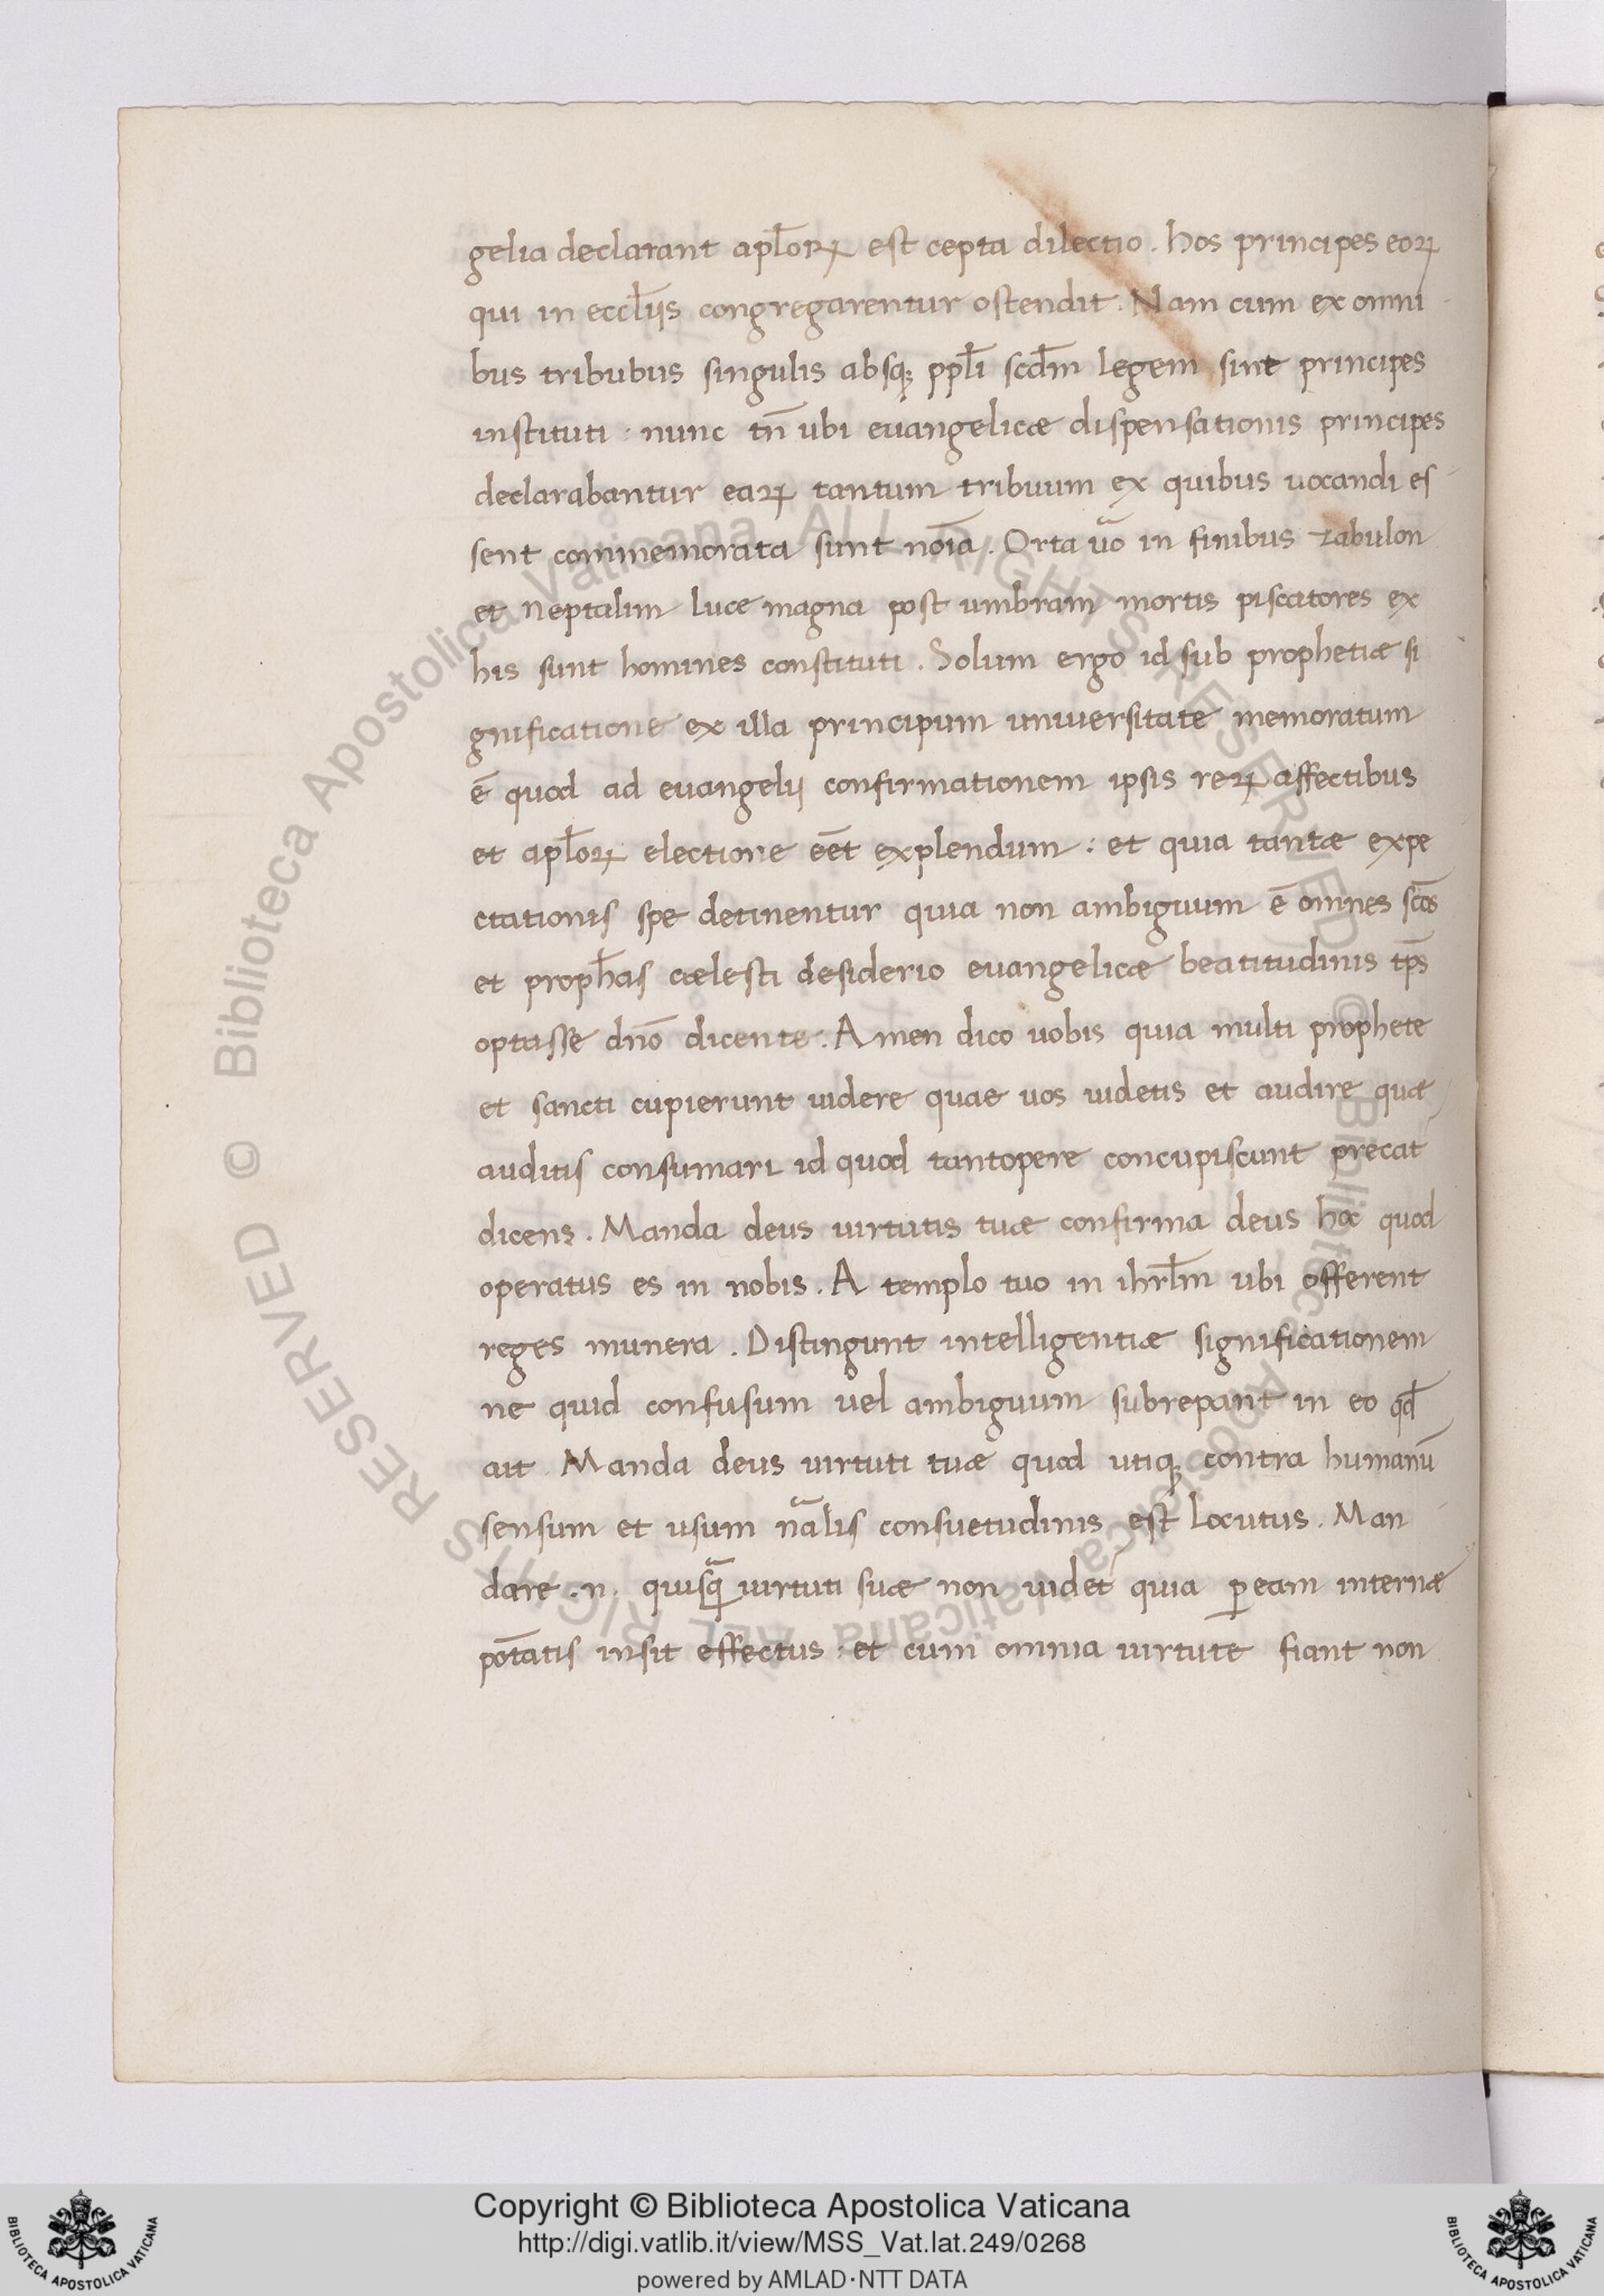 gelia declarant apl̄oꝝ est cepta dilectio. hos principes eoꝝ
qui in eccl̄iis congregarentur ostendit. Nam cum ex omni
bus tribubus singulis absq; ppl̄i scd̄m legem sint principes
instituti: nunc tn̄ ubi euangelicæ dispensationis principes
declarabantur eaꝝ tantum tribuum ex quibus uocandi es
sent commemorata sunt noīa. Orta uoᷓ in finibus zabulon
et Neptalim luce magna post umbram mortis piscatores ex
his sunt homines constituti. Solum ergo id sub prophetiæ si
gnificatione ex illa principum uniuersitate memoratum
ē quod ad euangelij confirmationem ipsis reꝝ affectibus
et apl̄oꝝ electione eēt explendum: et quia tantæ expe
ctationis spe detinentur quia non ambiguum ē omnes scōs
et proph̄as cælesti desiderio euangelicæ beatitudinis tp̄s
optasse dn̄o dicente. Amen dico uobis quia multi prophete
et sancti cupierunt uidere quae uos uidetis et audire quæ
auditis consumari id quod tantopere concupiscunt precat
dicens. Manda deus uirtutis tuæ confirma deus hoc quod
operatus es in nobis. A templo tuo in ihrl̄m ubi offerent
reges munera. Distingunt intelligentiæ significationem
ne quid confusum uel ambiguum subrepant in eo qd̄
ait. Manda deus uirtuti tuæ quod utiq; contra humanū
sensum et usum naᷓlis consuetudinis est locutus. Man
dare .n. quisqᷓ uirtuti suæ non uidet᷑ quia ꝑ eam internæ
potātis insit effectus: et cum omnia uirtute fiant non
Copyright © Biblioteca Apostolica Vaticana
http://digi.vatlib.it/view/MSS_Vat.lat.249/0268
powered by AMLAD·NTT DATA
BIBLIOTECA APOSTOLICA VATICANA
BIBLIOTECA APOSTOLICA VATICANA
© Biblioteca Apostolica Vaticana ALL RIGHTS RESERVED © Biblioteca Apostolica Vaticana ALL RIGHTS RESERVED